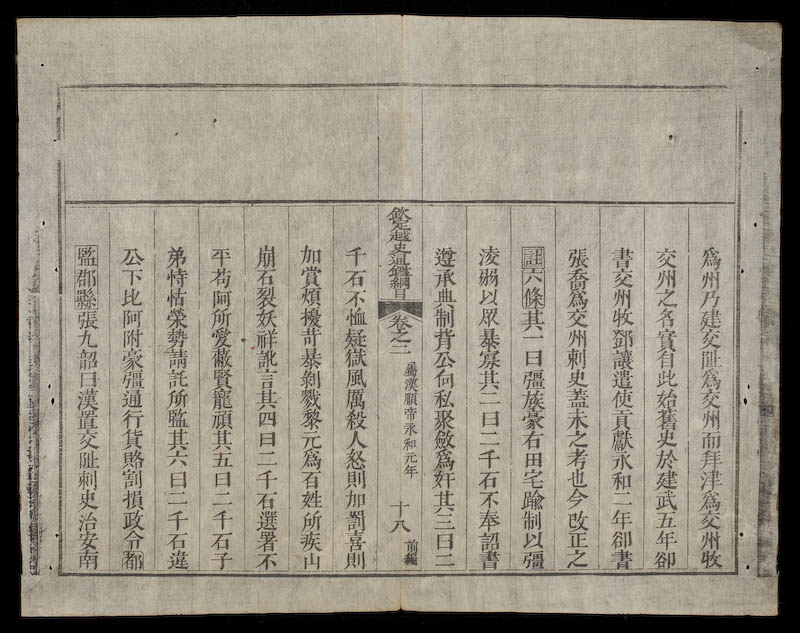 爲州乃建交阯爲交州而拜津爲交州牧
交州之名實自此始舊史於建武五年卻
書交州牧鄧讓遣使貢獻永和二年卻書
張喬爲交州刺史蓋未之考也今改正之
註六條其一曰彊族豪右田宅踰制以彊
凌弱以眾暴寡其二曰二千石不奉詔書
遵承典制背公向私聚斂爲奸其三曰二
欽定越史通鑑綱目 卷之二 屬漢順帝永和元年 十八 前編
千石不恤疑獄風厲殺人怒則加罰喜則
加賞煩擾苛暴剝戮黎元爲百姓所疾山
崩石裂妖祥訛言其四曰二千石選署不
平苟阿所愛蔽賢寵頑其五曰二千石子
弟恃怙榮勢請託所監其六曰二千石違
公下比阿附豪彊通行貨賂割損政令都
監郡縣張九韶曰漢置交阯刺史治安南